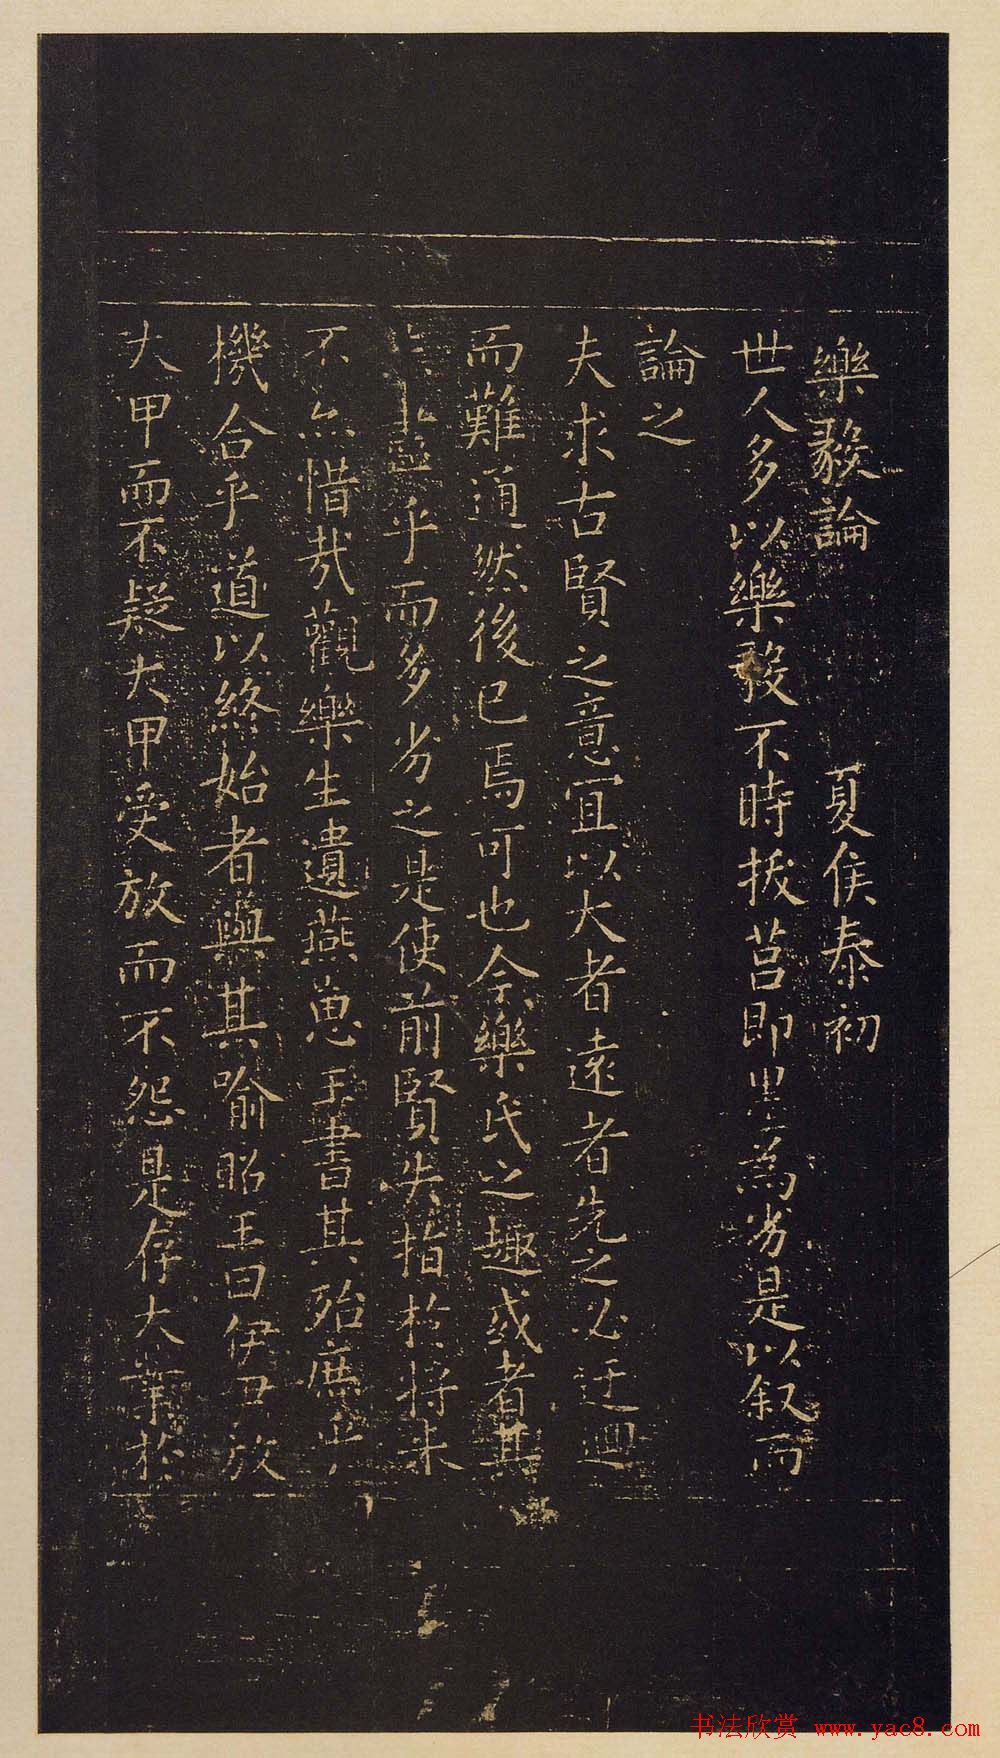 樂毅論 夏侯泰初
世人多以樂毅不時拔莒即墨為劣是以叙而
論之
夫求古賢之意宜以大者遠者先之必迂迴
而難通然後已焉可也今樂氏之趣或者其
盡乎而多劣之是使前賢失指於將来
不亦惜哉觀樂生遺燕惠王書其殆庶
機合乎道以終始者與其喻昭王曰伊尹放
大甲而不疑大甲受放而不怨是存大業於
书法欣赏 www.yac8.com